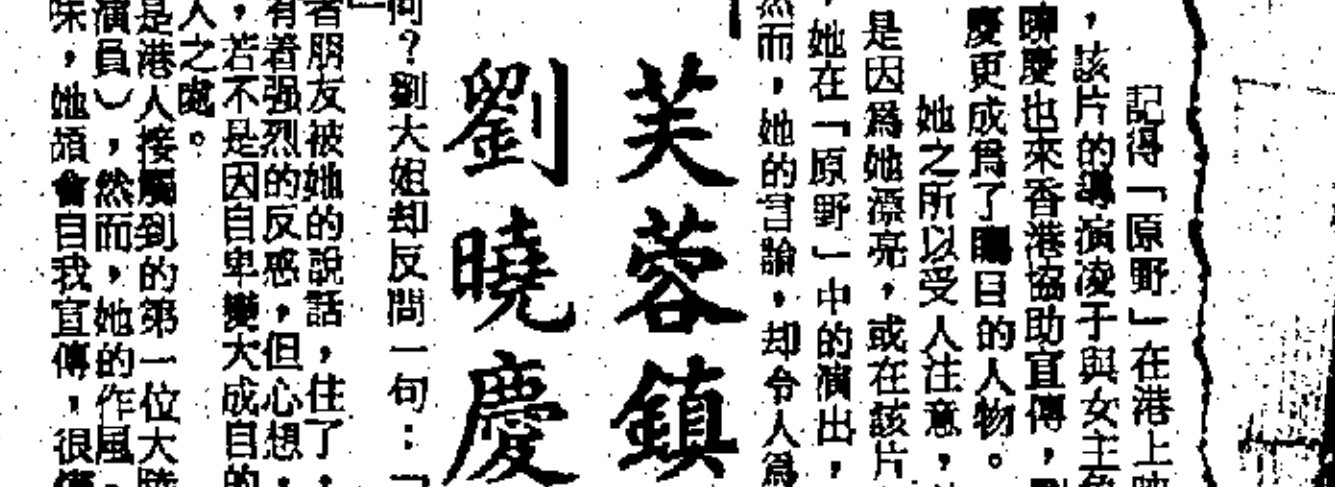 記得「原野」在港上映
，該片的導演凌子與女主角
曉慶也來香港協助宣傳，劉
慶更成爲了矚目的人物。
她之所以受人注意，
是因爲她漂亮，或在該片
，她在「原野」中的演出，
然而，她的言論，却令人爲
芙蓉鎮
劉曉慶
何？劉大姐却反問一句：「
者朋友被她的說話，住了，
有着强烈的反感，但心想，
，若不是因自卑變大成自的
人之處。
是港人接觸到的第一位大陸
演員），然而，她的作風，
味，她頗會自我宣傳，很